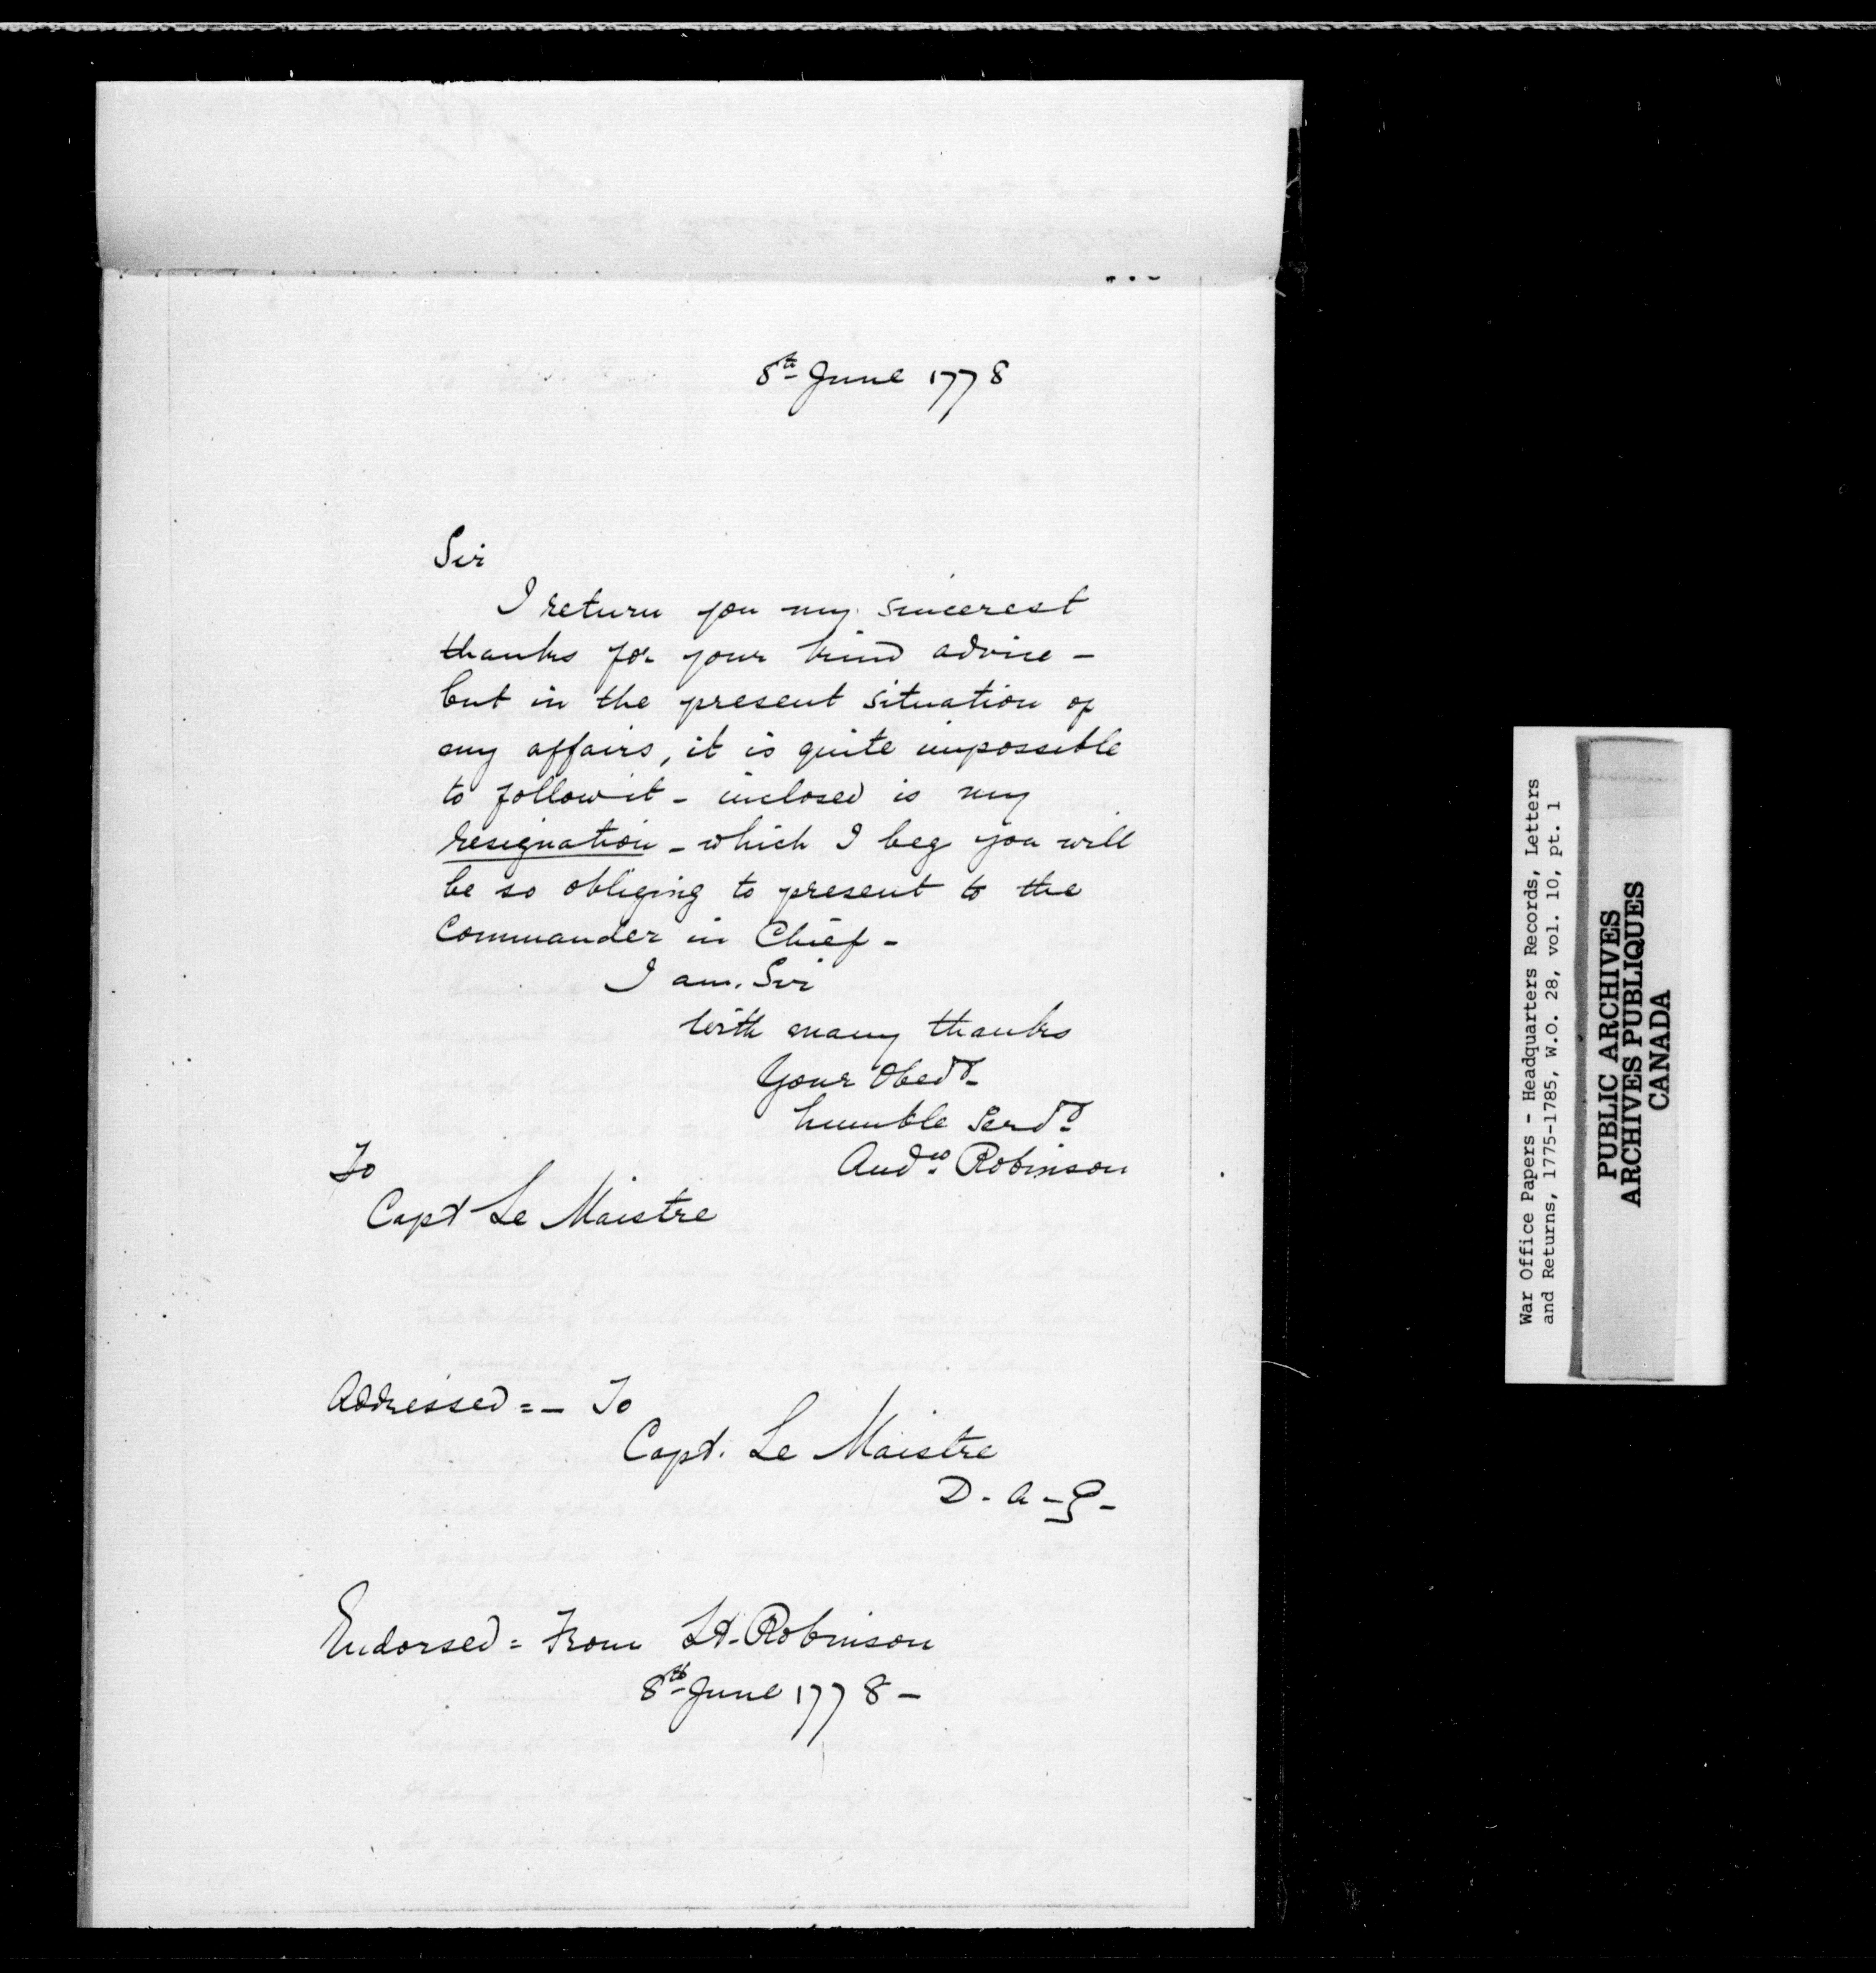 8th June 1778
Sir
I return you my sincerest
thanks for your kind advice -
but in the present situation of
my affairs, it is quite impossible
to follow it - inclosed is my
resignation - which I beg you will
be so obliging to present to the
Commander in Chief -
I am. Sir
with many thanks
Your Obedt
humble Servt
Andw Robinson
To
Capt Le Maistre
Addressed = - To
Capt. Le Maistre
D. A - G -
Endorsed = From Lt. Robinson
8th June 1778 -
War Office Papers - Headquarters Records, Letters
and Returns, 1775-1785, W.O. 28, vol. 10, pt. 1
PUBLIC ARCHIVES
ARCHIVES PUBLIQUES
CANADA